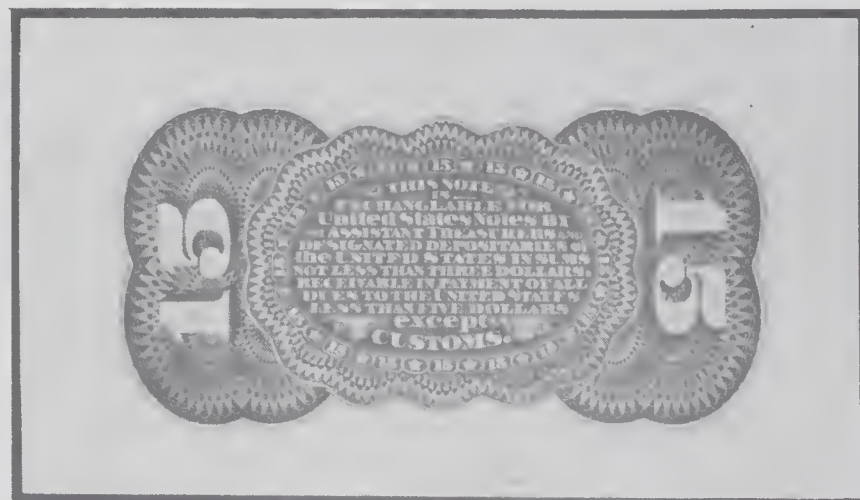 15
15 15 15
THIS NOTE
IS
EXCHANGEABLE FOR
United States Notes BY
THE ASSISTANT TREASURERS AND
DESIGNATED DEPOSITARIES OF
the UNITED STATES IN SUMS
NOT LESS THAN THREE DOLLARS.
RECEIVABLE IN PAYMENT OF ALL
DUES TO THE UNITED STATES
LESS THAN FIVE DOLLARS
except
CUSTOMS.
15 15 15
15